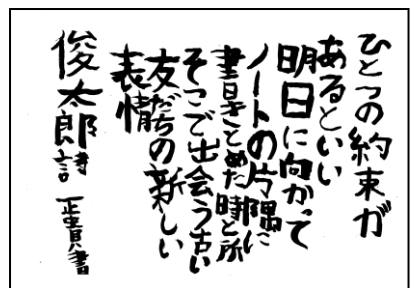 ひとつの約束が
あるといい
明日に向かって
ノートの片隅に
書きとめた時と所
そこで出会う古い
友だちの新しい
表情
俊太郎詩 正貴書